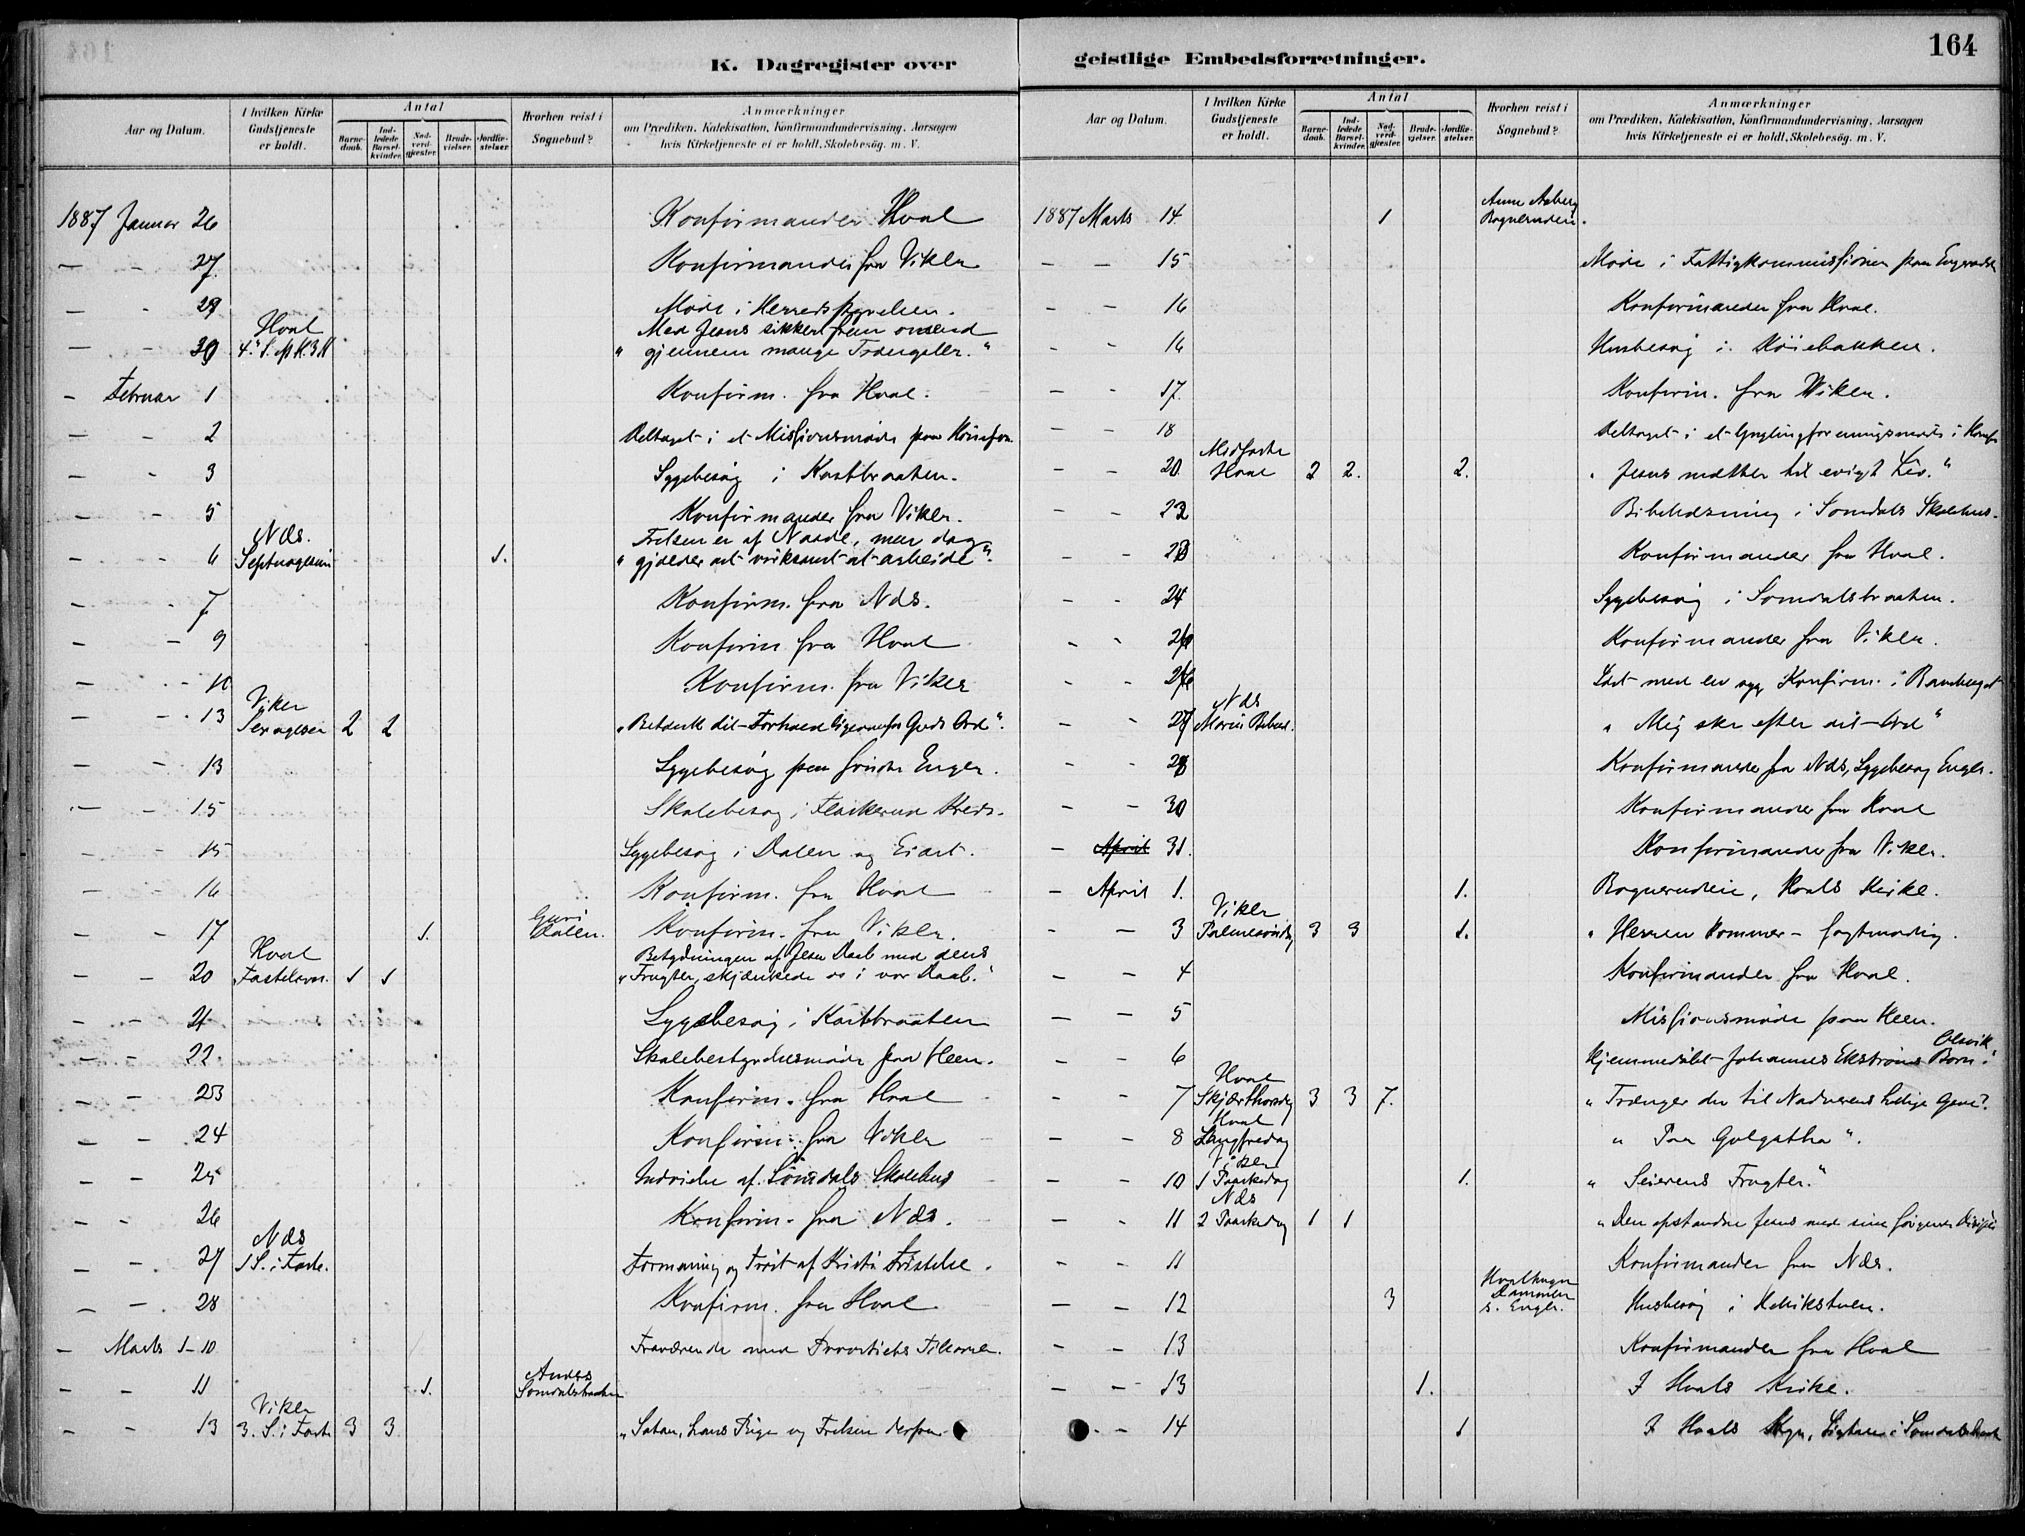 164
K. Dagregister over geistlige Embedsforretninger.
Aar og Datum.
I hvilken Kirke Gudstjeneste er holdt.
Antal
Barne-daab.
Ind-ledede Barsel-kvinder.
Nad-verd-gjæster.
Brude-vielser.
Jordfæ-stelser.
Hvorhen reist i Sognebud?
Anmærkninger
om Prædiken, Katekisation, Konfirmandundervisning, Aarsagen
hvis Kirketjeneste ei er holdt, Skolebesøg. m. V.
1887 Januar 26 Konfirmander Hval
— - 27. Konfirmander fra Viker
— - 29 Møde i Herredsstyrelsen.
— - 30 Hval 4. S. "Med Jesus sikkert frem omend
gjennem mange Trængsler."
— Februar 1 Konfirm. fra Hval.
— - 2 Deltaget i et Missionsmøde paa
— - 3 Sygebesøg i Kastbraaten.
— - 5 Konfirmander fra Viker.
— - 6 Næs. Septuagesim 1. "Frelsen er af Naade, men dog
gjælder det virksomt at arbeide".
— - 7 Konfirm. fra Næs.
— - 9 Konfirm fra Hval
— - 10 Konfirm. fra Viker
— - 13 Viker 2 2 "Betænk dit Forhold ligeoverfor Guds Ord".
— - 13 Sygebesøg paa Enger.
— - 15 Skolebesøg i Kreds.
— - 15 Sygebesøg i Dalen og
— - 16 Konfirm. fra Hval
— - 17 1. Guri Dalen. Konfirm. fra Viker.
— - 20 Hval Fastelavn. 1 1 "Betydningen af Jesu Daab med dens
Frugter, skjænkede os i vor Daab."
— - 21 Sygebesøg i Kastbraaten
— - 22 Skolebestyrelsesmøde paa Heen.
— - 23 Konfirm. fra Hval
— - 24 Konfirm. fra Viker
— - 25 Indvielse af Somdals Skolehus
— - 26 Konfirm. fra Næs.
— - 27 Næs 1 S. i Faste. Formaning og Trøst af Kristi Fristelse.
— - 28 Konfirm. fra Hval
— Marts 1-10 Fraværende med Provstiets Tilladelse.
— - 11 1. Anders Somdalsbraaten
— - 13 Viker 3. S. i Faste 3 3 "Satan, hans Rige og Frelsen derfra.
Aar og Datum.
I hvilken Kirke Gudstjeneste er holdt.
Antal
Barne-daab.
Ind-ledede Barsel-kvinder.
Nad-verd-gjæster.
Brude-vielser.
Jordfæ-stelser.
Hvorhen reist i Sognebud?
Anmærkninger
om Prædiken, Katekisation, Konfirmandundervisning, Aarsagen
hvis Kirketjeneste ei er holdt, Skolebesøg. m. V.
1887 Marts 14. 1 Anne Aaberg Bognerudeie.
— - 15 Møde i Fattigkommissionen paa
— - 16 Konfirmander fra Hval.
- - 16 Husbesøg i Høiebakken.
— - 17. Konfirm. fra Viker.
— - 18 Deltaget i et Ynglingforeningsmøde i
— - 20 Midfaste Hval 2 2. 2. "Jesus mætter til evigt Liv."
— - 22 Bibellæsning i Somdals Skolehus.
- - 23 Konfirmander fra Hval.
— - 24 Sygebesøg i Somdalsbraaten.
- - 26 Konfirmander fra Viker.
- - 26 Læst med en syg Konfirm. i
— - 27 Næs Mariæ Bebud. "Mig ske efter dit Ord"
— - 28 Konfirmander fra Næs, Sygebesøg Enger.
— - 30 Konfirmander fra Hval
— April 31. Konfirmander fra Viker.
— April 1. 1. Bognerudeie, Hvals Kirke.
— - 3 Viker Palmesøndag 3 3 1. "Herren kommer – sagtmodig.
— - 4 Konfirmander fra Hval.
— - 5 Missionsmøde paa Heen.
— - 6 Hjemmedøbt Johannes Ekstrøms Barn. Olsvik
— - 7 Hval Skjærthorsdag 3 3 7. "Trænger du til Nadverens hellige Gave?
— - 8 Hval Langfredag "Paa Golgatha".
— - 10 Viker 1 Paaskedag 1. "Seierens Frugter."
— - 11 Næs 2 Paaskedag 1 1 "Den opstandne Jesus med sine sørgende Disciple
- - 11 Konfirmander fra Næs.
— - 12 3 s. Enger. Husbesøg i
— - 13 Konfirmander fra Hval
— - 13 1. I Hvals Kirke.
- - 14 1 I Hvals Sogn,